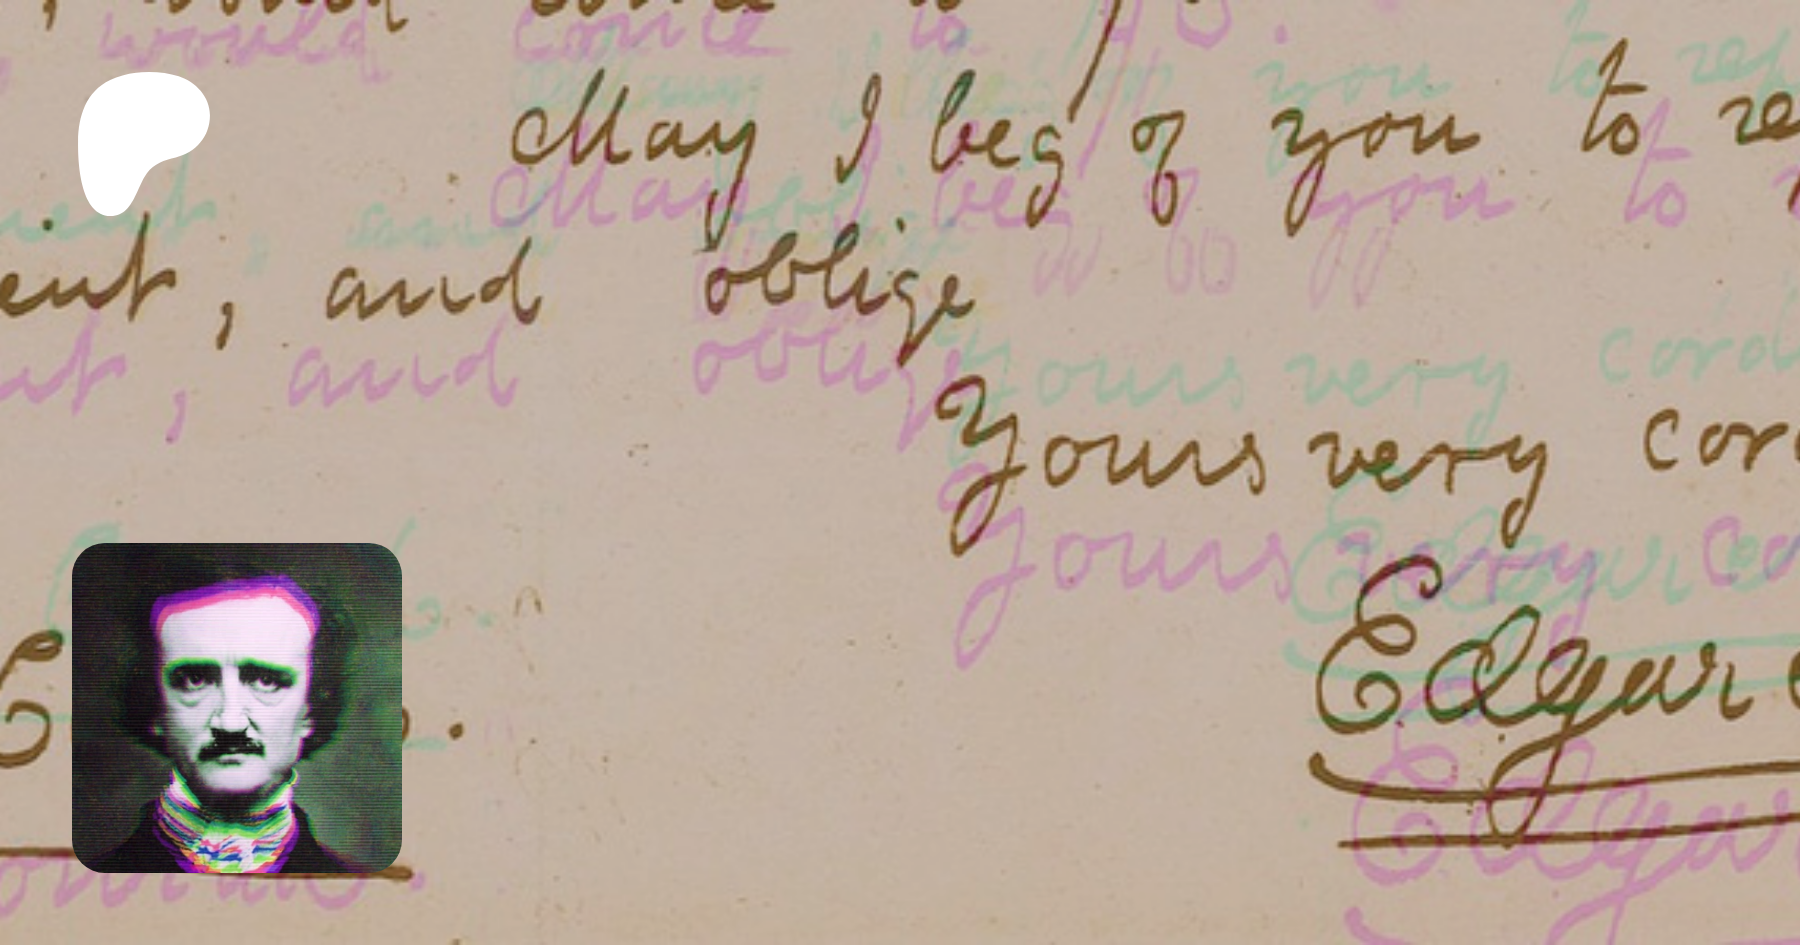 would come to
May I beg of you to re
ent, and oblige
Yours very cor
Edgar